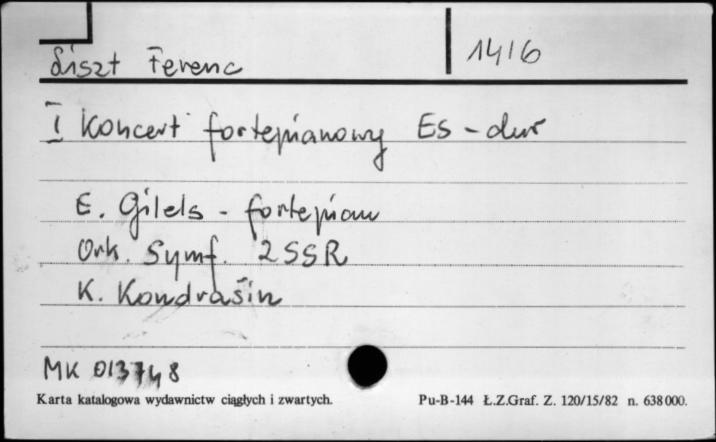 Liszt Ferenc 1416
I Koncert fortepianowy Es-dur
E. Gilels - fortepian
Ork. Symf. ZSSR
K. Kondrašin
MK 013748
Karta katalogowa wydawnictw ciągłych i zwartych. Pu-B-144 Ł.Z.Graf. Z. 120/15/82 n. 638000.